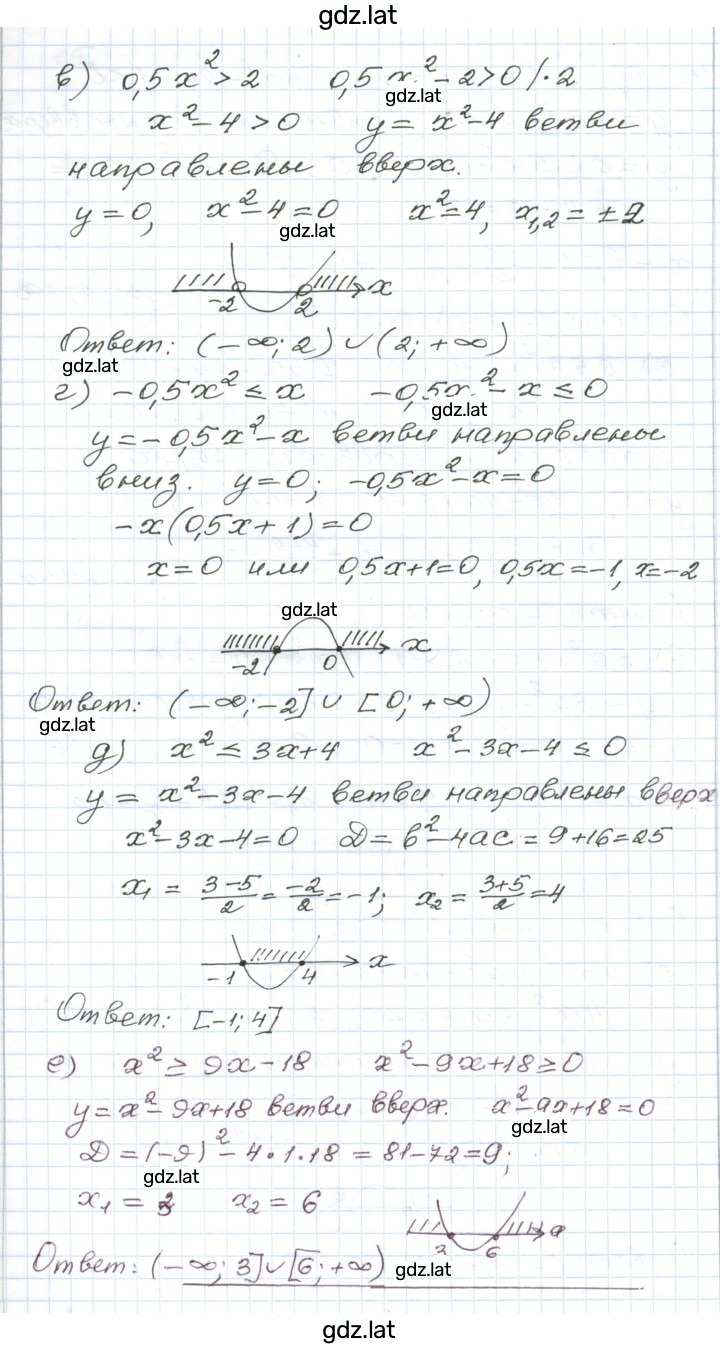 gdz.lat
в) 0,5x² > 2 0,5x² - 2 > 0 /·2
gdz.lat
x² - 4 > 0 y = x² - 4 ветви
направлены вверх.
y = 0, x² - 4 = 0 x² = 4, x₁,₂ = ±2
gdz.lat
-2 2 x
Ответ: (-∞; 2) ∪ (2; +∞)
gdz.lat
г) -0,5x² ≤ x -0,5x² - x ≤ 0
gdz.lat
y = -0,5x² - x ветви направлены
вниз. y = 0; -0,5x² - x = 0
-x(0,5x + 1) = 0
x = 0 или 0,5x + 1 = 0, 0,5x = -1, x = -2
gdz.lat
-2 0 x
Ответ: (-∞; -2] ∪ [0; +∞)
gdz.lat
д) x² ≤ 3x + 4 x² - 3x - 4 ≤ 0
y = x² - 3x - 4 ветви направлены вверх
x² - 3x - 4 = 0 D = b² - 4ac = 9 + 16 = 25
x₁ = (3-5)/2 = -2/2 = -1; x₂ = (3+5)/2 = 4
-1 4 x
Ответ: [-1; 4]
е) x² ≥ 9x - 18 x² - 9x + 18 ≥ 0
y = x² - 9x + 18 ветви вверх. x² - 9x + 18 = 0
gdz.lat
D = (-9)² - 4·1·18 = 81 - 72 = 9;
gdz.lat
x₁ = 3 x₂ = 6
3 6 x
Ответ: (-∞; 3] ∪ [6; +∞)
gdz.lat
gdz.lat